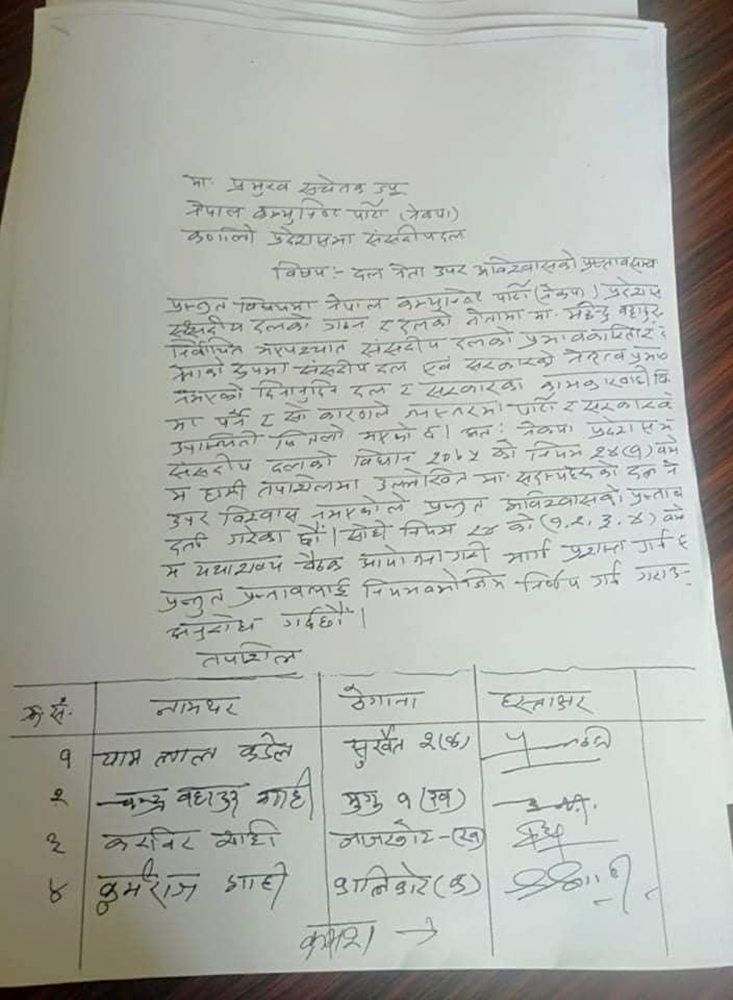 मा. प्रमुख सचेतक ज्यू
नेपाल कम्युनिष्ट पार्टी (नेकपा)
कर्णाली प्रदेशसभा संसदीयदल
विषय:- दल नेता उपर अविश्वासको प्रस्ताव
प्रस्तुत विषयमा नेपाल कम्युनिष्ट पार्टी (नेकपा) प्रदेशसभा
संसदीय दलको गठन र दलको नेतामा मा. महेन्द्र बहादुर
निर्वाचित भएपश्चात संसदीय दलको प्रभावकारिता
रुपमा संसदीय दल एवं सरकारको नेतृत्व
नभएको दिनानुदिन दल र सरकारको कामकारवाही
मा पर्ने र सो कारणले पार्टी र सरकारको
उपस्थिती भएको छ। अत: नेकपा प्रदेशसभा
संसदीय दलको विधान २०७५ को नियम २४(१)
म हामी तपशिलमा उल्लेखित मा. सदस्यहरुको दल ने
उपर विश्वास नभएकोले प्रस्तुत अविश्वासको प्रस्ताव
दर्ता गरेका छौं। सोही नियम २४ को (१.२, ३. ४)
म यथाशक्य बैठक आयोजना गरी मार्ग प्रशस्त गर्न
प्रस्तुत प्रस्तावलाई नियमबमोजिम निर्णय गर्न गराउन
अनुरोध गर्दछौं।
तपशिल
क्र सं. नामथर ठेगाना हस्ताक्षर
१ याम लाल कडेल सुर्खेत २(क)
२ चन्द्र बहादुर शाही मुगु १(ख)
३ करविर शाही जाजरकोट-(ख)
४ कुर्मराज शाही कालिकोट (क)
क्रमश →